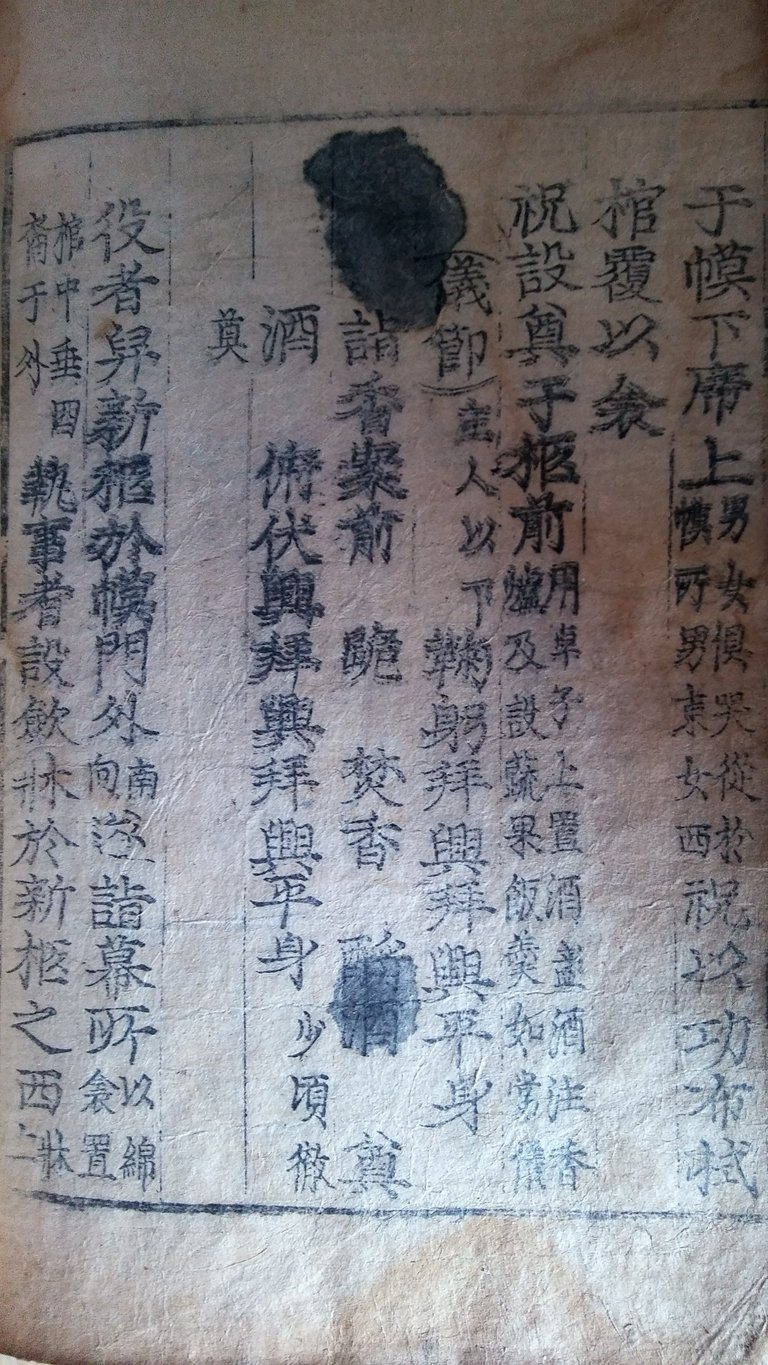 于幙下席上男女俱哭從於幙所男東女西祝以功布拭
棺覆以衾
祝設奠于柩前用卓子上置酒盞酒注香爐及設蔬果飯羹如常儀
(儀節)主人以下鞠躬拜興拜興平身
詣香案前 跪 焚香 酹酒 奠
酒 俯伏興拜興拜興平身少頃徹
奠
役者舁新柩於幙門外南向遂詣幕所以綿衾置
棺中垂四裔于外執事者設斂牀於新柩之西牀